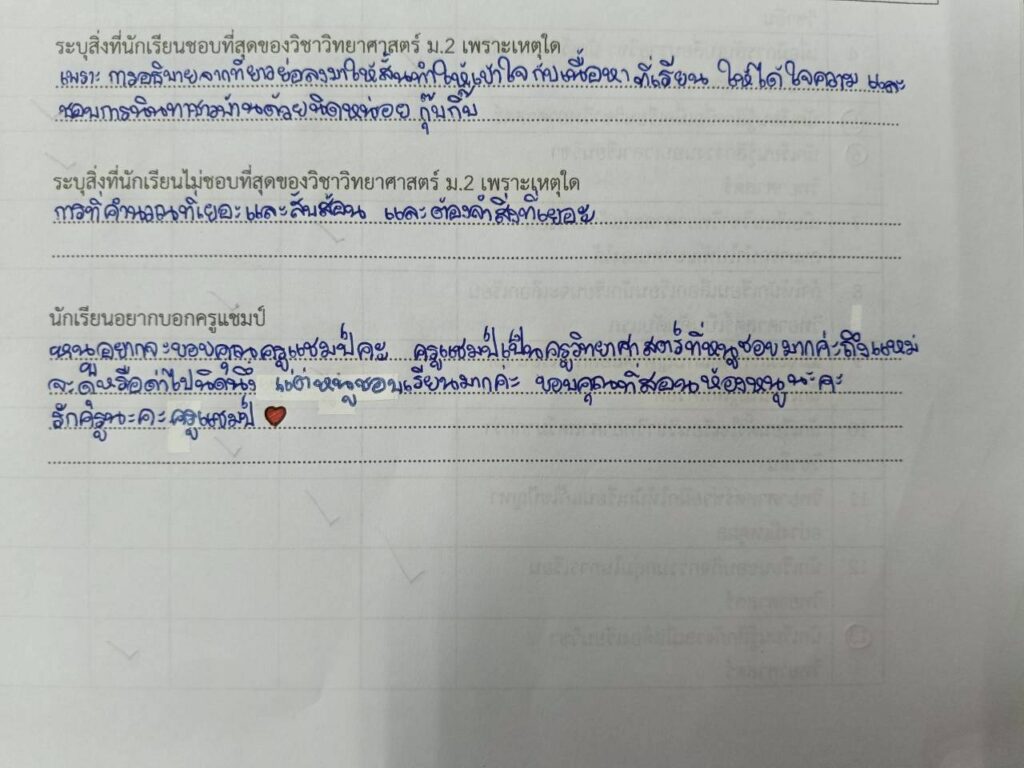 ระบุสิ่งที่นักเรียนชอบที่สุดของวิชาวิทยาศาสตร์ ม.2 เพราะเหตุใด
เพราะ การอธิบายจากที่ยาวย่อลงมาให้สั้นทำให้เข้าใจกับเนื้อหา ที่เรียน ให้ได้ใจความ และ
ชอบการนินทาชาวบ้านด้วยนิดหน่อย กุ๊บกิ๊บ
ระบุสิ่งที่นักเรียนไม่ชอบที่สุดของวิชาวิทยาศาสตร์ ม.2 เพราะเหตุใด
การที่คำนวณที่เยอะและสับสอน และต้องจำสิ่งที่เยอะ
นักเรียนอยากบอกครูแชมป์
หนูอยากจะขอบคุณครูแชมป์คะ ครูแชมป์เป็นครูวิทยาศาสตร์ที่หนูชอบมากค่ะถึงแหม่
จะดุหรือด่าไปนิดนึง แต่หนูชอบเรียนมากค่ะ ขอบคุณที่สอนห้องหนูนะคะ
รักครูนะคะครูแชมป์